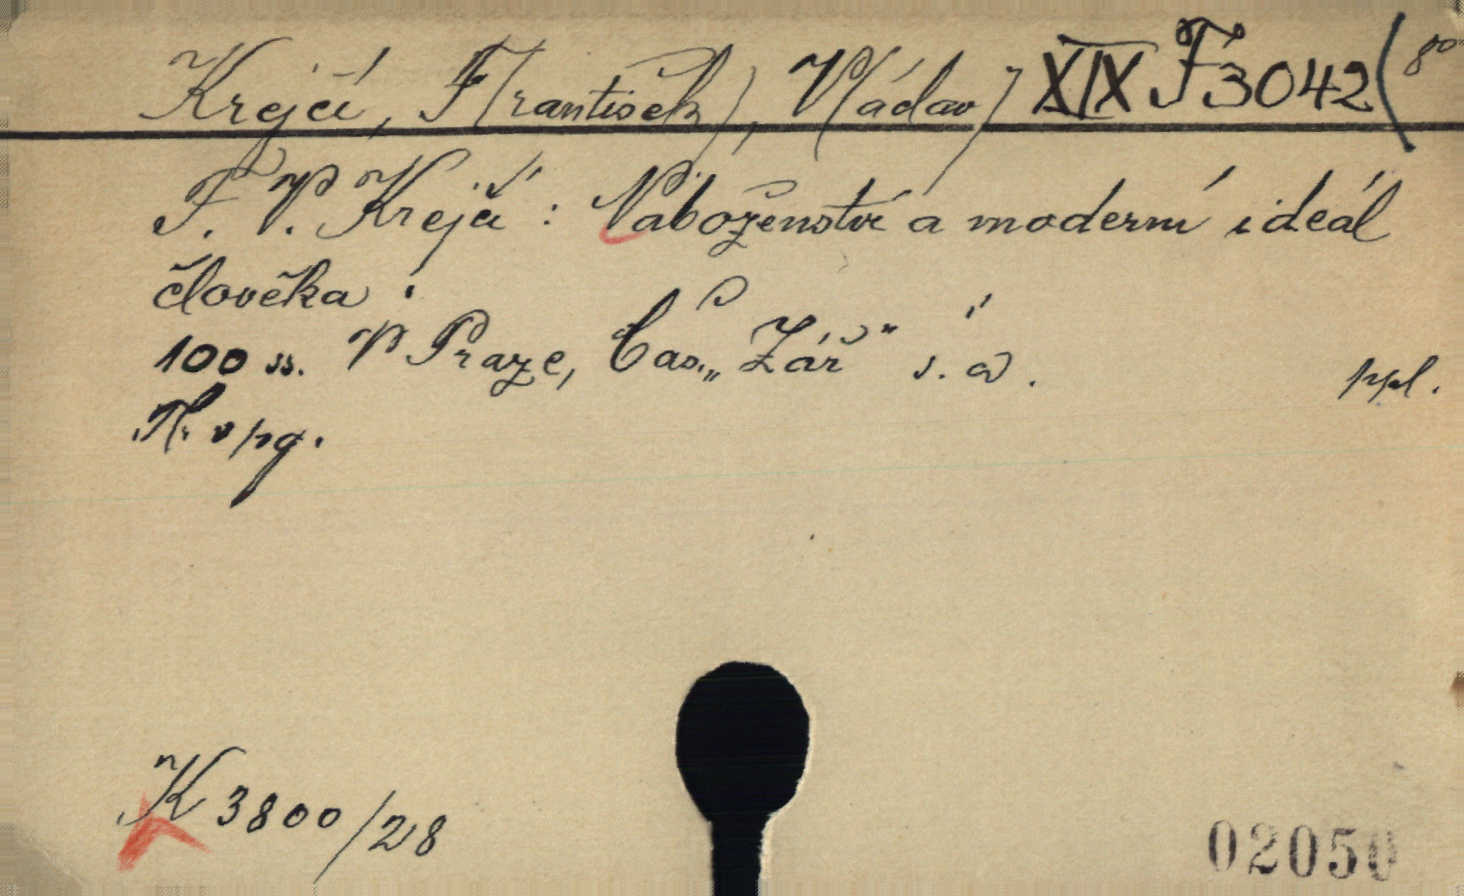 Krejčí, F(rantišek), V(áclav) XIX F 3042 (8°
F. V. Krejčí: Náboženství a moderní ideál
člověka.
100 ss. V Praze, Čas. „Zář“ s. a. ppl.
v pg.
K 3800/28
02050